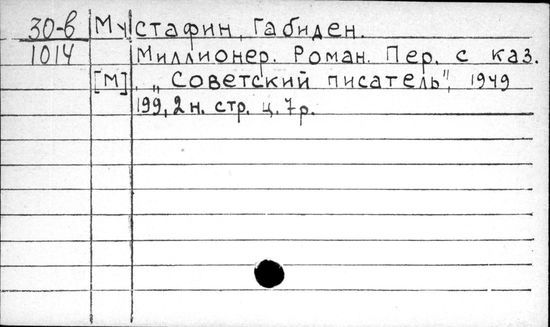 30-в Мустафин, Габиден.
1014 Миллионер. Роман. Пер. с каз.
[М], „Советский писатель", 1949
199, 2 н. стр. ц. 7 р.